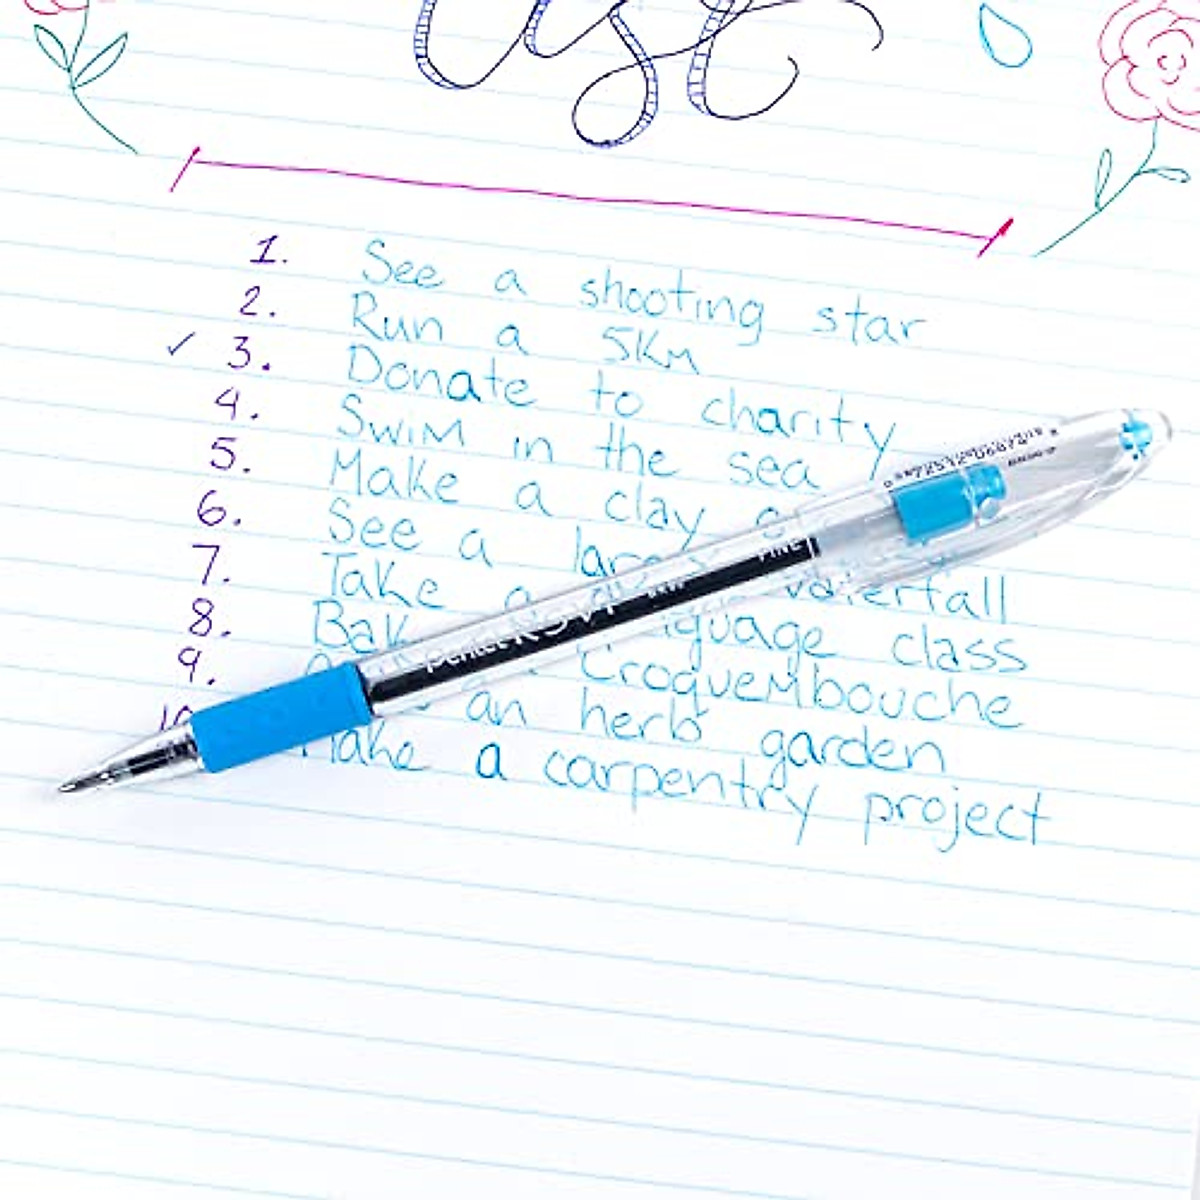 1. See a shooting star
2. Run a 5Km
✓ 3. Donate to charity
4. Swim in the sea
5. Make a clay
6. See a large waterfall
7. Take a language class
8. Bake a Croquembouche
9. an herb garden
10. Make a carpentry project
Pentel R.S.V.P. FINE